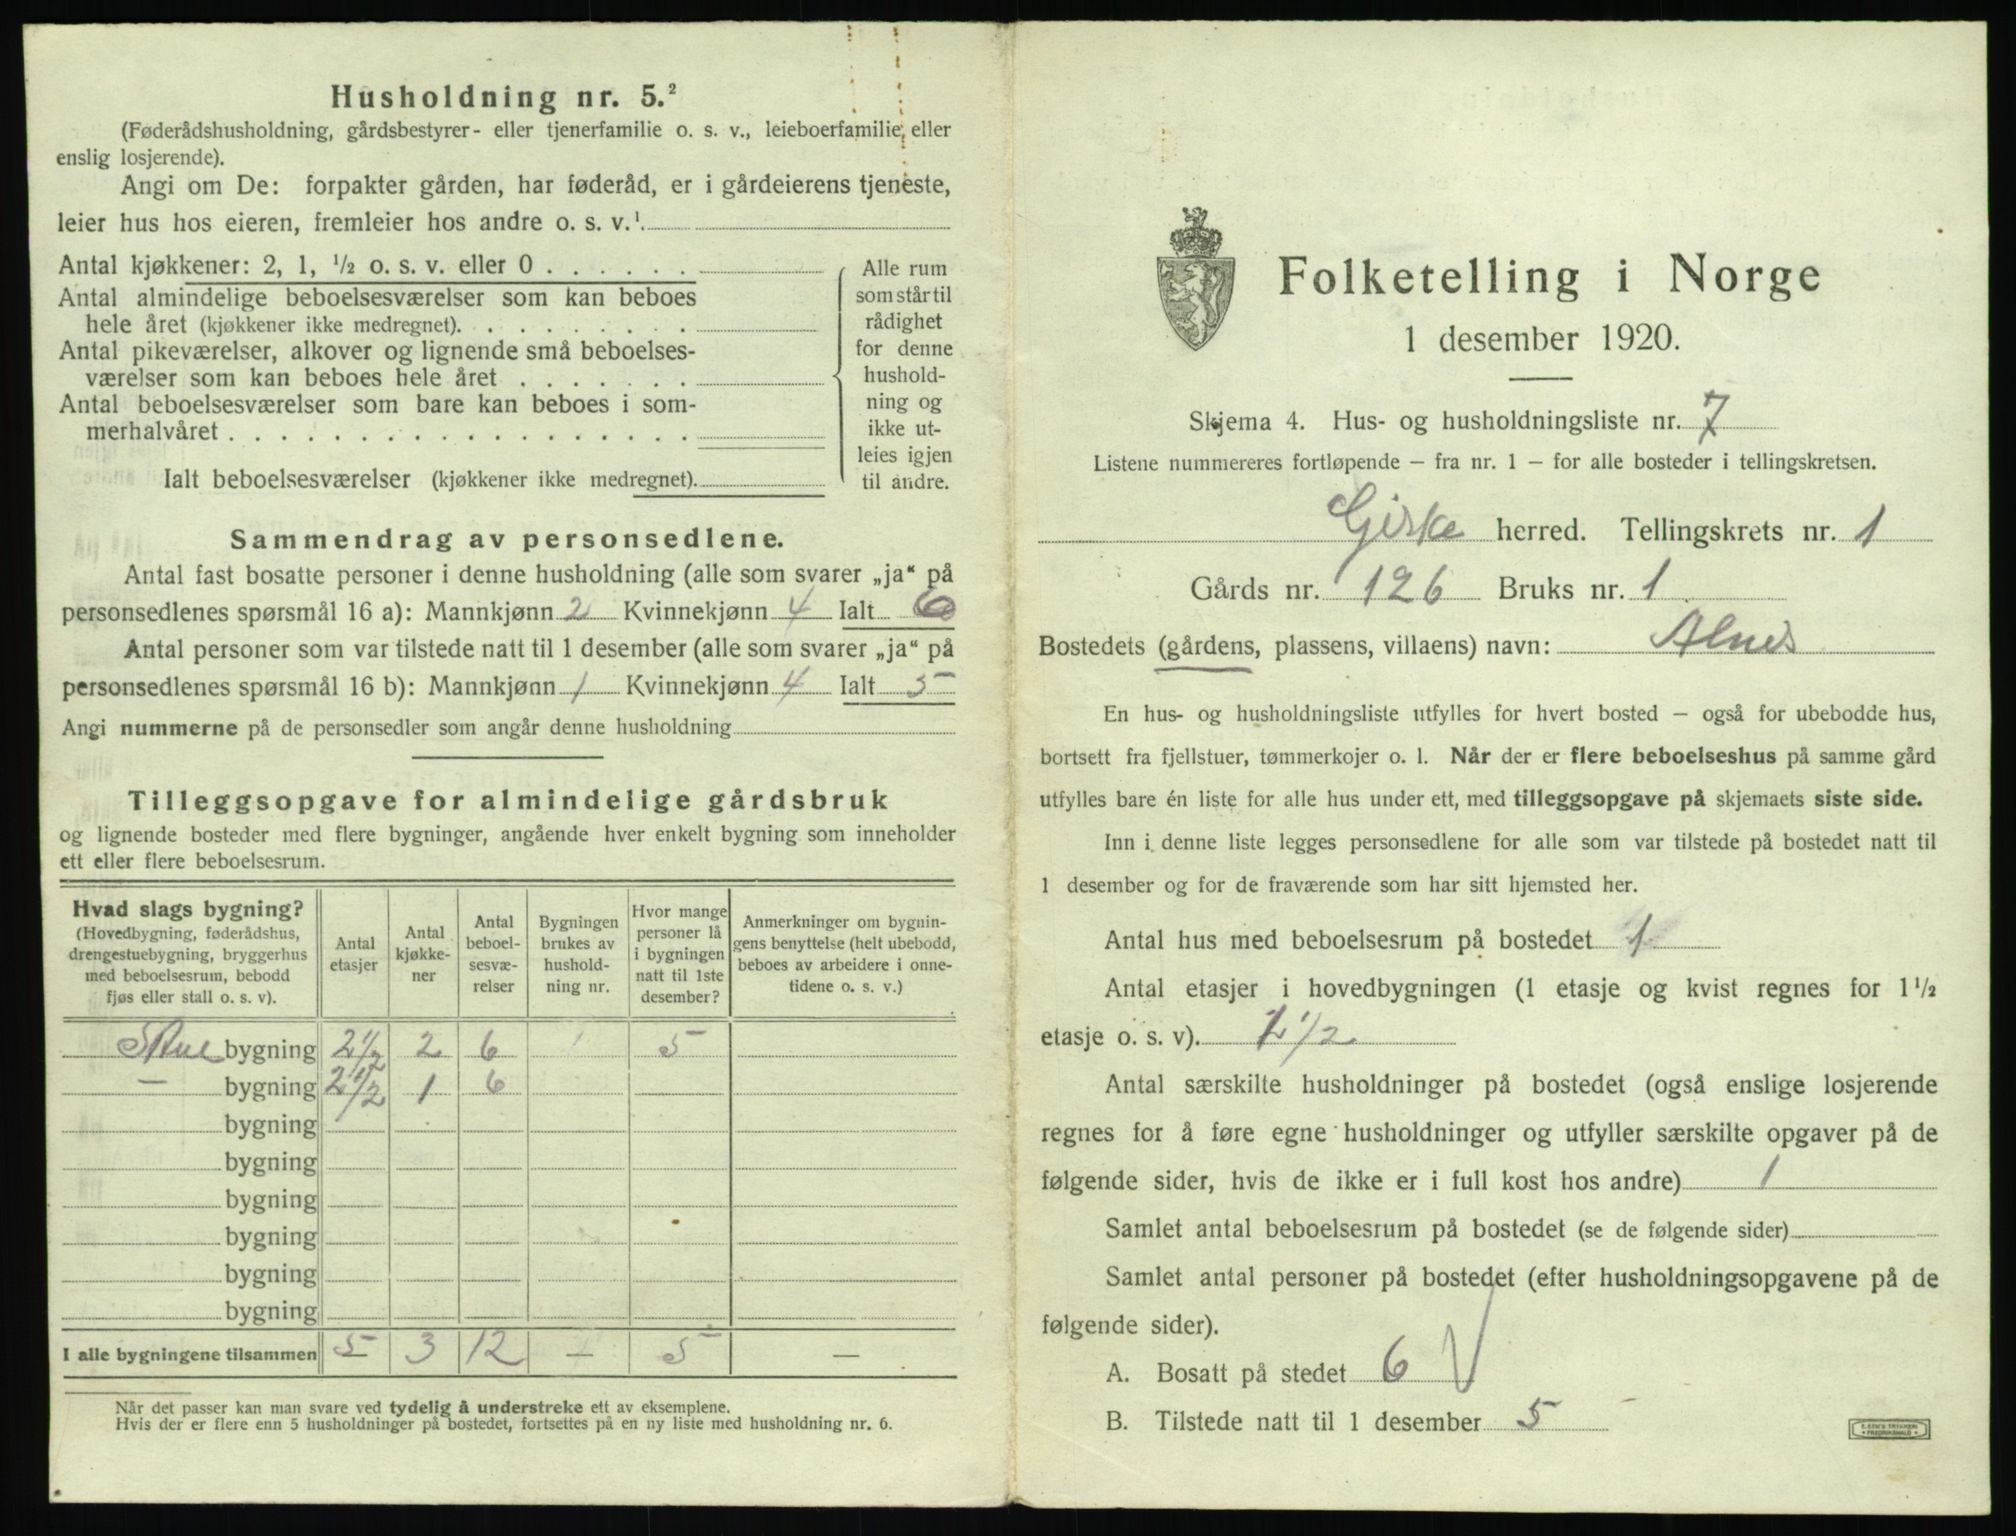 Husholdning nr. 5.²
(Føderådshusholdning, gårdsbestyrer- eller tjenerfamilie o. s. v., leieboerfamilie eller
enslig losjerende).
Angi om De: forpakter gården, har føderåd, er i gårdeierens tjeneste,
leier hus hos eieren, fremleier hos andre o. s. v.¹.
Antal kjøkkener: 2, 1, ½ o. s. v. eller 0 . . . . . .
Antal almindelige beboelsesværelser som kan beboes
hele året (kjøkkener ikke medregnet). . . . . . . . .
Antal pikeværelser, alkover og lignende små beboelses-
værelser som kan beboes hele året . . . . . . .
Antal beboelsesværelser som bare kan beboes i som-
merhalvåret . . . . . . . . . . . . . . . . . .
Ialt beboelsesværelser (kjøkkener ikke medregnet).
Alle rum
som står til
rådighet
for denne
hushold-
ning og
ikke ut-
leies igjen
til andre.
Sammendrag av personsedlene.
Antal fast bosatte personer i denne husholdning (alle som svarer „ja“ på
personsedlenes spørsmål 16 a): Mannkjønn 2 Kvinnekjønn 4 Ialt 6
Antal personer som var tilstede natt til 1 desember (alle som svarer „ja“ på
personsedlenes spørsmål 16 b): Mannkjønn 1 Kvinnekjønn 4 Ialt 5
Angi nummerne på de personsedler som angår denne husholdning
Tilleggsopgave for almindelige gårdsbruk
og lignende bosteder med flere bygninger, angående hver enkelt bygning som inneholder
ett eller flere beboelsesrum.
Hvad slags bygning?
(Hovedbygning, føderådshus,
drengestuebygning, bryggerhus
med beboelsesrum, bebodd
fjøs eller stall o. s. v).
Antal
etasjer
Antal
kjøkke-
ner
Antal
beboel-
sesvæ-
relser
Bygningen
brukes av
hushold-
ning nr.
Hvor mange
personer lå
i bygningen
natt til 1ste
desember?
Anmerkninger om bygnin-
gens benyttelse (helt ubebodd,
beboes av arbeidere i onne-
tidene o. s. v.)
Stue bygning 2½ 2 6 1 5
— bygning 2½ 1 6
bygning
bygning
bygning
bygning
bygning
bygning
I alle bygningene tilsammen 5 3 12 — 5 —
Når det passer kan man svare ved tydelig å understreke ett av eksemplene.
Hvis der er flere enn 5 husholdninger på bostedet, fortsettes på en ny liste med husholdning nr. 6.
Folketelling i Norge
1 desember 1920.
Skjema 4. Hus- og husholdningsliste nr. 7
Listene nummereres fortløpende — fra nr. 1 — for alle bosteder i tellingskretsen.
Giske herred. Tellingskrets nr. 1
Gårds nr. 126 Bruks nr. 1
Bostedets (gårdens, plassens, villaens) navn: Alnes
En hus- og husholdningsliste utfylles for hvert bosted — også for ubebodde hus,
bortsett fra fjellstuer, tømmerkojer o. l. Når der er flere beboelseshus på samme gård
utfylles bare én liste for alle hus under ett, med tilleggsopgave på skjemaets siste side.
Inn i denne liste legges personsedlene for alle som var tilstede på bostedet natt til
1 desember og for de fraværende som har sitt hjemsted her.
Antal hus med beboelsesrum på bostedet 1
Antal etasjer i hovedbygningen (1 etasje og kvist regnes for 1½
etasje o. s. v). 2½
Antal særskilte husholdninger på bostedet (også enslige losjerende
regnes for å føre egne husholdninger og utfyller særskilte opgaver på de
følgende sider, hvis de ikke er i full kost hos andre) 1
Samlet antal beboelsesrum på bostedet (se de følgende sider)
Samlet antal personer på bostedet (efter husholdningsopgavene på de
følgende sider).
A. Bosatt på stedet 6
B. Tilstede natt til 1 desember 5